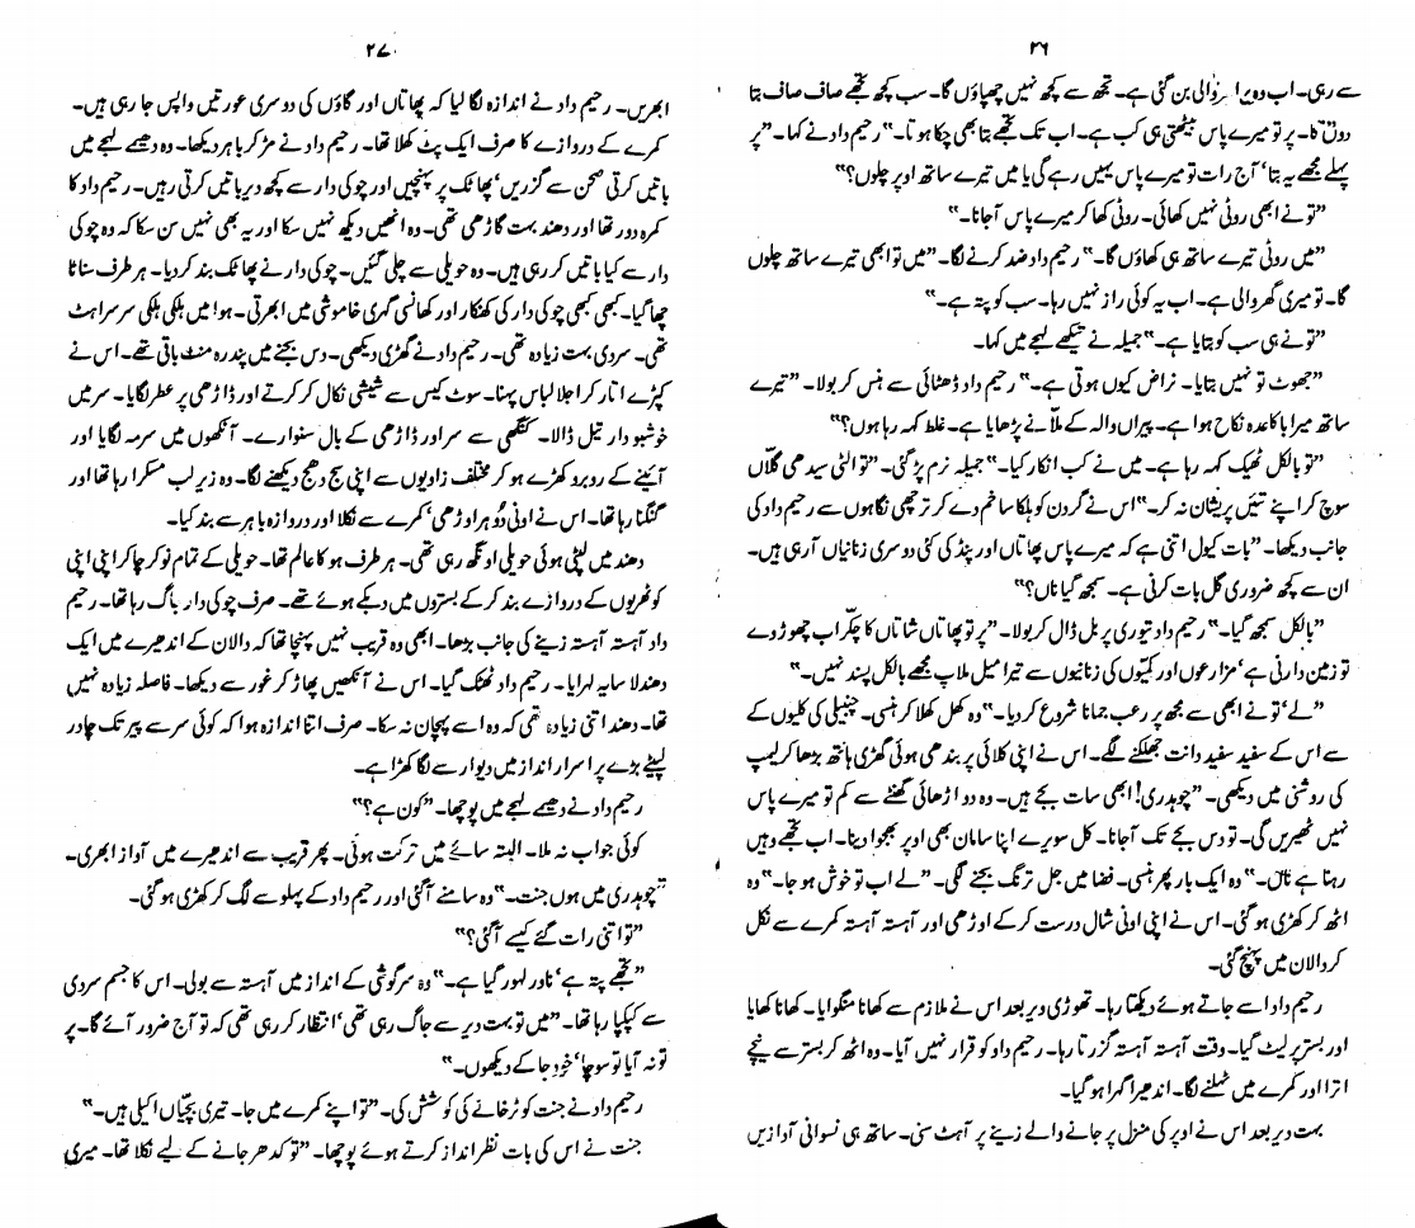 ۲۶
سے رہی۔ اب وہ پرا والی بن گئی ہے۔ تجھ سے کچھ نہیں چھپاؤں گا۔ سب کچھ تجھے صاف صاف بتا
دوں گا۔ پر تو میرے پاس بیٹھتی ہی کب ہے۔ اب تک تجھے بتا بھی چکا ہوتا۔" رحیم داد نے کہا۔ "پر
پہلے مجھے یہ بتا، آج رات تو میرے پاس یہیں رہے گی یا میں تیرے ساتھ اوپر چلوں؟"
"تو نے ابھی روٹی نہیں کھائی۔ روٹی کھا کر میرے پاس آجانا۔"
"میں روٹی تیرے ساتھ ہی کھاؤں گا۔" رحیم داد ضد کرنے لگا۔ "میں تو ابھی تیرے ساتھ چلوں
گا۔ تو میری گھر والی ہے۔ اب یہ کوئی راز نہیں رہا۔ سب کو پتہ ہے۔"
"تو نے ہی سب کو بتایا ہے۔" جمیلہ نے تیکھے لہجے میں کہا۔
"جھوٹ تو نہیں بتایا۔ نراض کیوں ہوتی ہے۔" رحیم داد ڈھٹائی سے ہنس کر بولا۔ "تیرے
ساتھ میرا باکاعدہ نکاح ہوا ہے۔ پیراں والہ کے ملاّ نے پڑھایا ہے۔ غلط کہہ رہا ہوں؟"
"تو بالکل ٹھیک کہہ رہا ہے۔ میں نے کب انکار کیا۔" جمیلہ نرم پڑ گئی۔ "تو الٹی سیدھی گلاّں
سوچ کر اپنے تئیں پریشان نہ کر۔" اس نے گردن کو ہلکا سا خم دے کر ترچھی نگاہوں سے رحیم داد کی
جانب دیکھا۔ "بات کیول اتنی ہے کہ میرے پاس پھاتاں اور پنڈ کی کئی دوسری زنانیاں آرہی ہیں۔
ان سے کچھ ضروری گل بات کرنی ہے۔ سمجھ گیا ناں؟"
"بالکل سمجھ گیا۔" رحیم داد تیوری پر بل ڈال کر بولا۔ "پر تو پھاتاں شاتاں کا چکّر اب چھوڑ دے
تو زمین دارنی ہے، مزارعوں اور کمّیوں کی زنانیوں سے تیرا میل ملاپ مجھے بالکل پسند نہیں۔"
"لے، تو نے ابھی سے مجھ پر رعب جمانا شروع کر دیا۔" وہ کھل کھلا کر ہنسی۔ چنبیلی کی کلیوں کے
سے اس کے سفید سفید دانت جھلکنے لگے۔ اس نے اپنی کلائی پر بندھی ہوئی گھڑی ہاتھ بڑھا کر لیمپ
کی روشنی میں دیکھی۔ "چوہدری! ابھی سات بجے ہیں۔ وہ دو اڑھائی گھنٹے سے کم تو میرے پاس
نہیں ٹھیریں گی۔ تو دس بجے تک آجانا۔ کل سویرے اپنا سامان بھی اوپر بھجوا دینا۔ اب تجھے وہیں
رہنا ہے ناں۔" وہ ایک بار پھر ہنسی۔ فضا میں جل ترنگ بجنے لگی۔ "لے اب تو خوش ہو جا۔" وہ
اٹھ کر کھڑی ہو گئی۔ اس نے اپنی اونی شال درست کر کے اوڑھی اور آہستہ آہستہ کمرے سے نکل
کر دالان میں پہنچ گئی۔
رحیم داد اسے جاتے ہوئے دیکھتا رہا۔ تھوڑی دیر بعد اس نے ملازم سے کھانا منگوایا۔ کھانا کھایا
اور بستر پر لیٹ گیا۔ وقت آہستہ آہستہ گزرتا رہا۔ رحیم داد کو قرار نہیں آیا۔ وہ اٹھ کر بستر سے نیچے
اترا اور کمرے میں ٹہلنے لگا۔ اندھیرا گہرا ہو گیا۔
بہت دیر بعد اس نے اوپر کی منزل پر جانے والے زینے پر آہٹ سنی۔ ساتھ ہی نسوانی آوازیں
۲۷
ابھریں۔ رحیم داد نے اندازہ لگا لیا کہ پھاتاں اور گاؤں کی دوسری عورتیں واپس جا رہی ہیں۔
کمرے کے دروازے کا صرف ایک پٹ کھلا تھا۔ رحیم داد نے مڑ کر باہر دیکھا۔ وہ دھیمے لہجے میں
باتیں کرتی صحن سے گزریں، پھاٹک پر پہنچیں اور چوکی دار سے کچھ دیر باتیں کرتی رہیں۔ رحیم داد کا
کمرہ دور تھا اور دھند بہت گاڑھی تھی۔ وہ انھیں دیکھ نہیں سکا اور یہ بھی نہیں سن سکا کہ وہ چوکی
دار سے کیا باتیں کر رہی ہیں۔ وہ حویلی سے چلی گئیں۔ چوکی دار نے پھاٹک بند کر دیا۔ ہر طرف سناٹا
چھا گیا۔ کبھی کبھی چوکی دار کی کھنکار اور کھانسی گہری خاموشی میں ابھرتی۔ ہوا میں ہلکی ہلکی سرسراہٹ
تھی۔ سردی بہت زیادہ تھی۔ رحیم داد نے گھڑی دیکھی۔ دس بجنے میں پندرہ منٹ باقی تھے۔ اس نے
کپڑے اتار کر اجلا لباس پہنا۔ سوٹ کیس سے شیشی نکال کر کرتے اور ڈاڑھی پر عطر لگایا۔ سر میں
خوشبو دار تیل ڈالا۔ کنگھی سے سر اور ڈاڑھی کے بال سنوارے۔ آنکھوں میں سرمہ لگایا اور
آئینے کے روبرو کھڑے ہو کر مختلف زاویوں سے اپنی سج دھج دیکھنے لگا۔ وہ زیر لب مسکرا رہا تھا اور
گنگنا رہا تھا۔ اس نے اونی دُوہر اوڑھی، کمرے سے نکلا اور دروازہ باہر سے بند کیا۔
دھند میں لپٹی ہوئی حویلی اونگھ رہی تھی۔ ہر طرف ہو کا عالم تھا۔ حویلی کے تمام نوکر چاکر اپنی اپنی
کوٹھریوں کے دروازے بند کر کے بستروں میں دبکے ہوئے تھے۔ صرف چوکی دار جاگ رہا تھا۔ رحیم
داد آہستہ آہستہ زینے کی جانب بڑھا۔ ابھی وہ قریب نہیں پہنچا تھا کہ دالان کے اندھیرے میں ایک
دھندلا سایہ لہرایا۔ رحیم داد ٹھٹک گیا۔ اس نے آنکھیں پھاڑ کر غور سے دیکھا۔ فاصلہ زیادہ نہیں
تھا۔ دھند اتنی زیادہ تھی کہ وہ اسے پہچان نہ سکا۔ صرف اتنا اندازہ ہوا کہ کوئی سر سے پیر تک چادر
لپیٹے بڑے پر اسرار انداز میں دیوار سے لگا کھڑا ہے۔
رحیم داد نے دھیمے لہجے میں پوچھا۔ "کون ہے؟"
کوئی جواب نہ ملا۔ البتہ سائے میں حرکت ہوئی۔ پھر قریب سے اندھیرے میں آواز ابھری۔
"چوہدری میں ہوں جنت۔" وہ سامنے آگئی اور رحیم داد کے پہلو سے لگ کر کھڑی ہو گئی۔
"تو اتنی رات گئے کیسے آگئی؟"
"تجھے پتہ ہے، نادر لہور گیا ہے۔" وہ سرگوشی کے انداز میں آہستہ سے بولی۔ اس کا جسم سردی
سے کپکپا رہا تھا۔ "میں تو بہت دیر سے جاگ رہی تھی، انتظار کر رہی تھی کہ تو آج ضرور آئے گا۔ پر
تو نہ آیا تو سوچا، خود جا کے دیکھوں۔"
رحیم داد نے جنت کو ٹرخانے کی کوشش کی۔ "تو اپنے کمرے میں جا۔ تیری بچیّاں اکیلی ہیں۔"
جنت نے اس کی بات نظر انداز کرتے ہوئے پوچھا۔ "تو کدھر جانے کے لیے نکلا تھا۔ میری